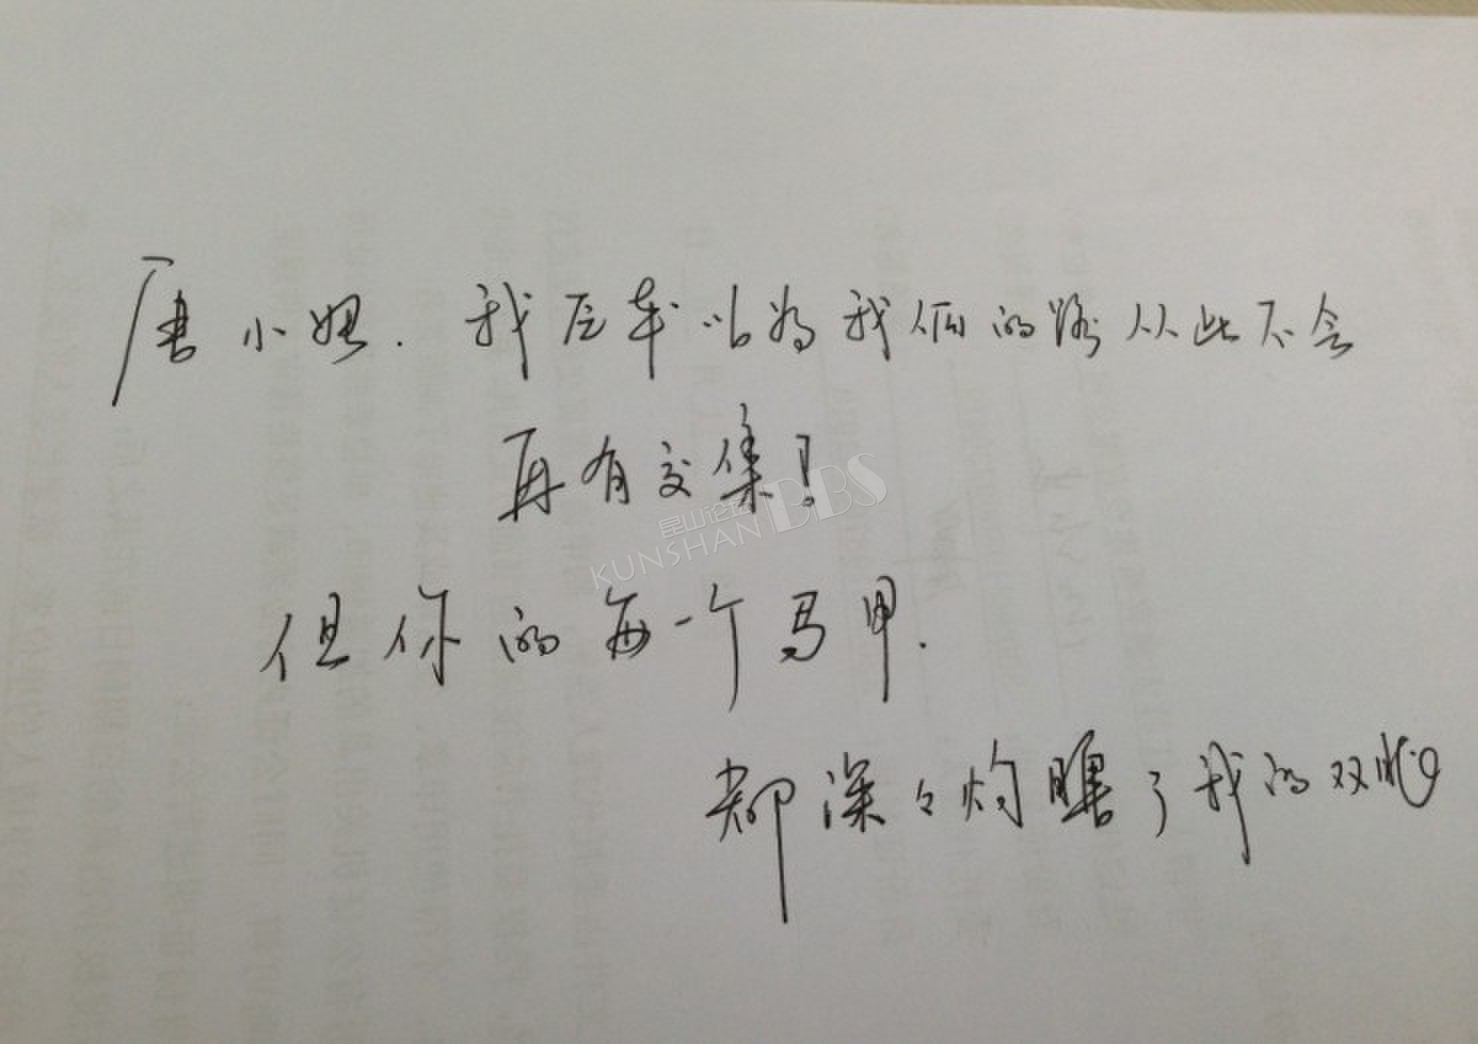 唐小姐. 我原本以为我俩的路从此不会
再有交集!
昆山论坛BBS
KUNSHAN
但你的每一个马甲.
都深々灼瞎了我的双眼